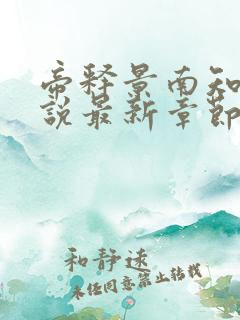 帝释景南知
说最新章节
和静远
未经同意禁止转载